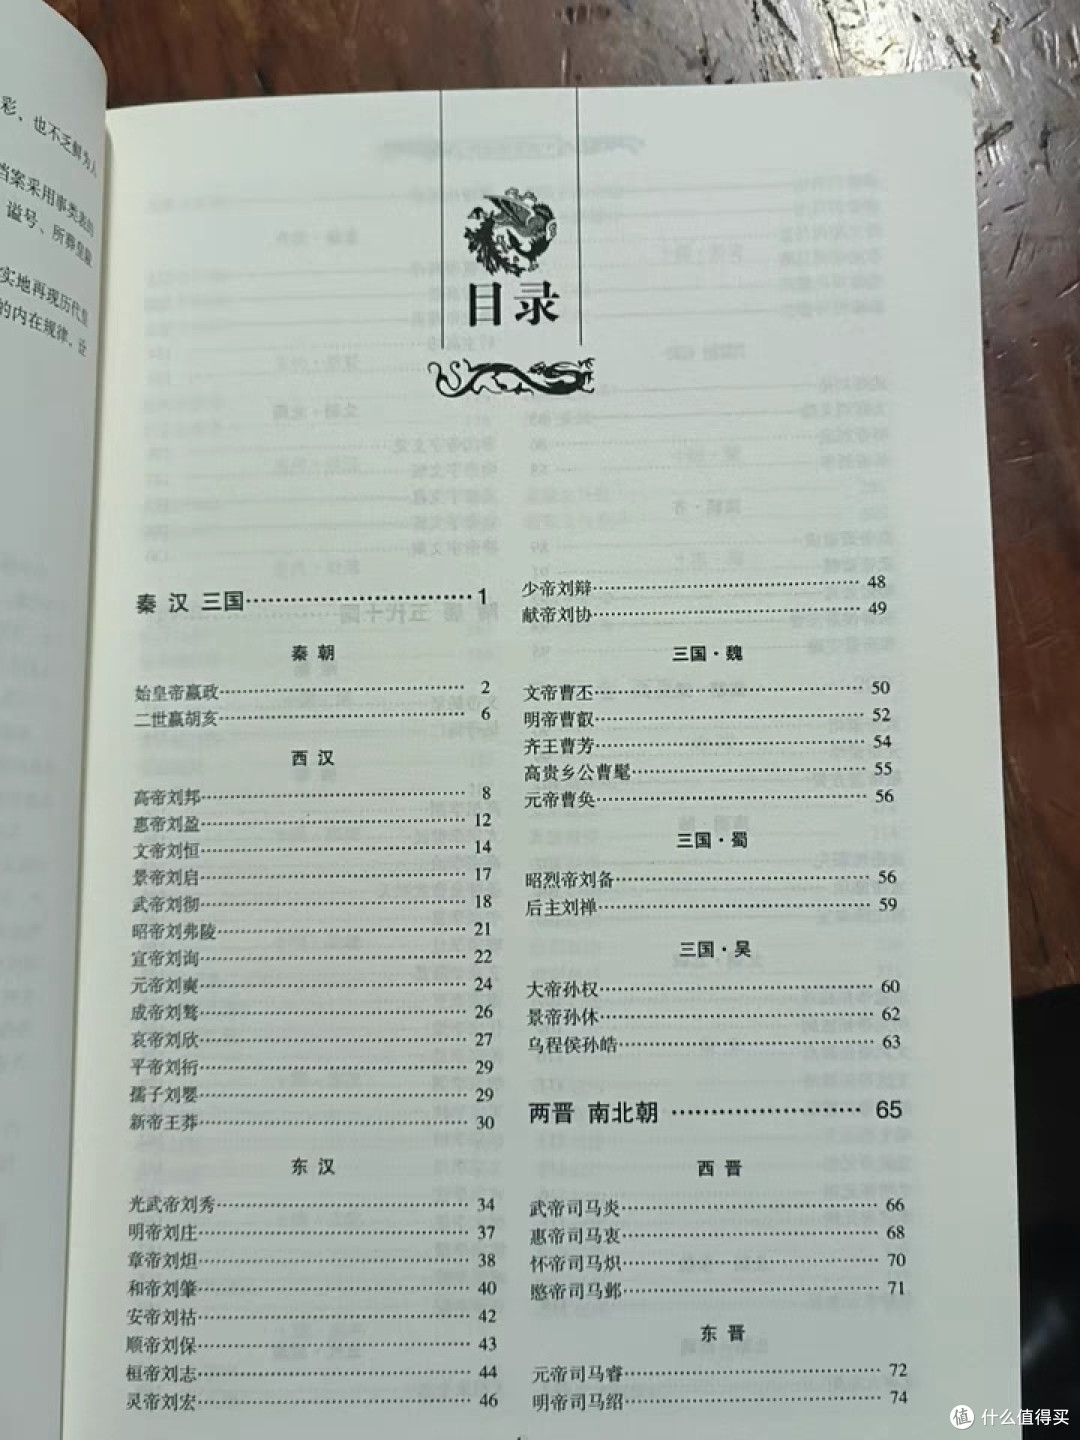 彩、也不乏鲜为人
档案采用事类表的
谥号、所葬皇陵
实地再现历代皇
的内在规律，诠
目录
秦 汉 三国……………………………1
秦 朝
始皇帝嬴政……………………………2
二世嬴胡亥……………………………6
西 汉
高帝刘邦……………………………8
惠帝刘盈……………………………12
文帝刘恒……………………………14
景帝刘启……………………………17
武帝刘彻……………………………18
昭帝刘弗陵……………………………21
宣帝刘询……………………………22
元帝刘奭……………………………24
成帝刘骜……………………………26
哀帝刘欣……………………………27
平帝刘衎……………………………29
孺子刘婴……………………………29
新帝王莽……………………………30
东 汉
光武帝刘秀……………………………34
明帝刘庄……………………………37
章帝刘炟……………………………38
和帝刘肇……………………………40
安帝刘祜……………………………42
顺帝刘保……………………………43
桓帝刘志……………………………44
灵帝刘宏……………………………46
少帝刘辩……………………………48
献帝刘协……………………………49
三国·魏
文帝曹丕……………………………50
明帝曹叡……………………………52
齐王曹芳……………………………54
高贵乡公曹髦……………………………55
元帝曹奂……………………………56
三国·蜀
昭烈帝刘备……………………………56
后主刘禅……………………………59
三国·吴
大帝孙权……………………………60
景帝孙休……………………………62
乌程侯孙皓……………………………63
两晋 南北朝……………………65
西 晋
武帝司马炎……………………………66
惠帝司马衷……………………………68
怀帝司马炽……………………………70
愍帝司马邺……………………………71
东 晋
元帝司马睿……………………………72
明帝司马绍……………………………74
值 什么值得买